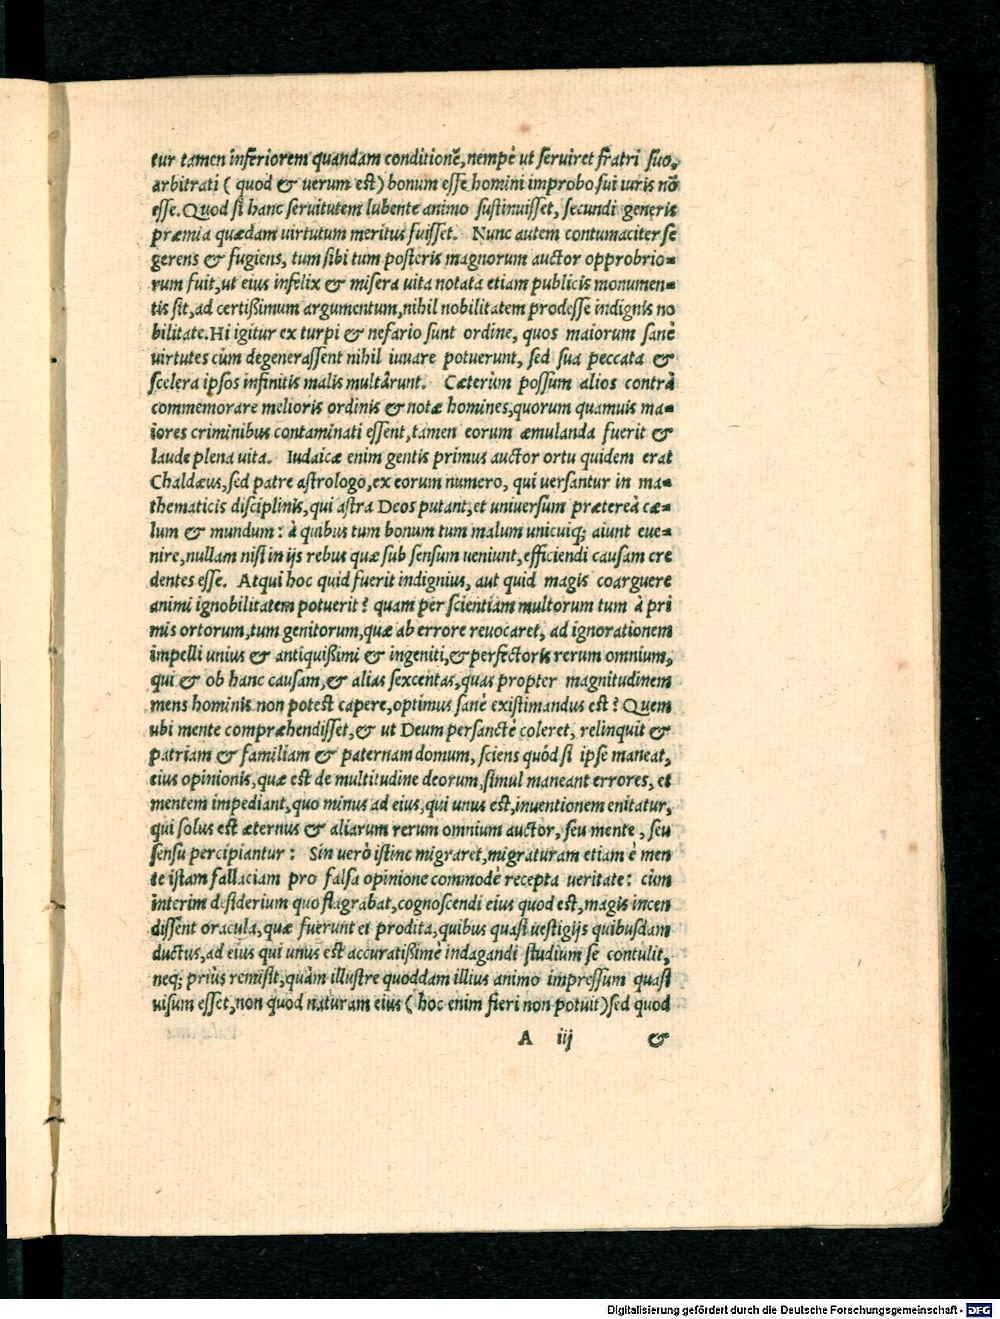 tur tamen inferiorem quandam conditionē, nempè ut serviret fratri suo,
arbitrati ( quod & uerum est) bonum esse homini improbo sui iuris nō
esse. Quod si hanc seruitutem lubente animo sustinuisset, secundi generis
præmia quædam uirtutum meritus fuisset. Nunc autem contumaciter se
gerens & fugiens, tum sibi tum posteris magnorum auctor opprobrio-
rum fuit, ut eius infelix & misera uita notata etiam publicis monumen-
tis sit, ad certißimum argumentum, nihil nobilitatem prodesse indignis no
bilitate. Hi igitur ex turpi & nefario sunt ordine, quos maiorum sanè
uirtutes cùm degenerassent nihil iuuare potuerunt, sed sua peccata &
scelera ipsos infinitis malis multârunt. Cæterùm possum alios contrà
commemorare melioris ordinis & notæ homines, quorum quamuis ma-
iores criminibus contaminati essent, tamen eorum æmulanda fuerit &
laude plena uita. Iudaicæ enim gentis primus auctor ortu quidem erat
Chaldæus, sed patre astrologo, ex eorum numero, qui uersantur in ma-
thematicis disciplinis, qui astra Deos putant, et uniuersum prætereà cæ-
lum & mundum: à quibus tum bonum tum malum unicuiq; aiunt eue-
nire, nullam nisi in ijs rebus quæ sub sensum ueniunt, efficiendi causam cre
dentes esse. Atqui hoc quid fuerit indignius, aut quid magis coarguere
animi ignobilitatem potuerit? quam per scientiam multorum tum à pri
mis ortorum, tum genitorum, quæ ab errore reuocaret, ad ignorationem
impelli unius & antiquißimi & ingeniti, & perfectoris rerum omnium,
qui & ob hanc causam, & alias sexcentas, quas propter magnitudinem
mens hominis non potest capere, optimus sanè existimandus est? Quem
ubi mente compræhendisset, & ut Deum persanctè coleret, relinquit &
patriam & familiam & paternam domum, sciens quòd si ipse maneat,
eius opinionis, quæ est de multitudine deorum, simul maneant errores, et
mentem impediant, quo minus ad eius, qui unus est, inuentionem enitatur,
qui solus est æternus & aliarum rerum omnium auctor, seu mente, seu
sensu percipiantur: Sin uerò istinc migraret, migraturam etiam è men
te istam fallaciam pro falsa opinione commodè recepta ueritate: cùm
interim desiderium quo flagrabat, cognoscendi eius quod est, magis incen
dissent oracula, quæ fuerunt ei prodita, quibus quasi uestigijs quibusdam
ductus, ad eius qui unus est accuratißimè indagandi studium se contulit,
neq; priùs remisit, quàm illustre quoddam illius animo impressum quasi
uisum esset, non quod naturam eius ( hoc enim fieri non potuit) sed quod
A iij &
Digitalisierung gefördert durch die Deutsche Forschungsgemeinschaft - DFG